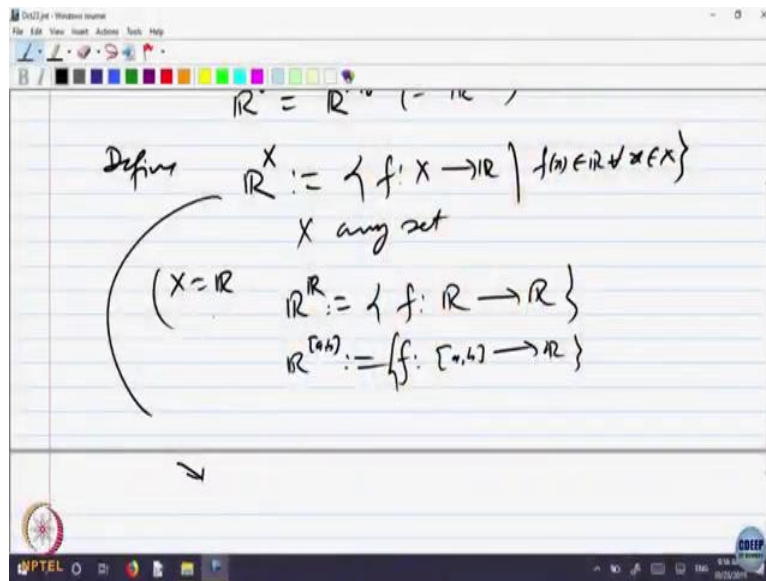 Oct23.jnt - Windows Journal
File Edit View Insert Actions Tools Help
B I
Define ℝ^X := { f: X → ℝ | f(x) ∈ ℝ ∀ x ∈ X}
X any set
(X = ℝ ℝ^ℝ := { f: ℝ → ℝ }
ℝ^[a,b] := {f: [a,b] → ℝ }
NPTEL
CDEEP